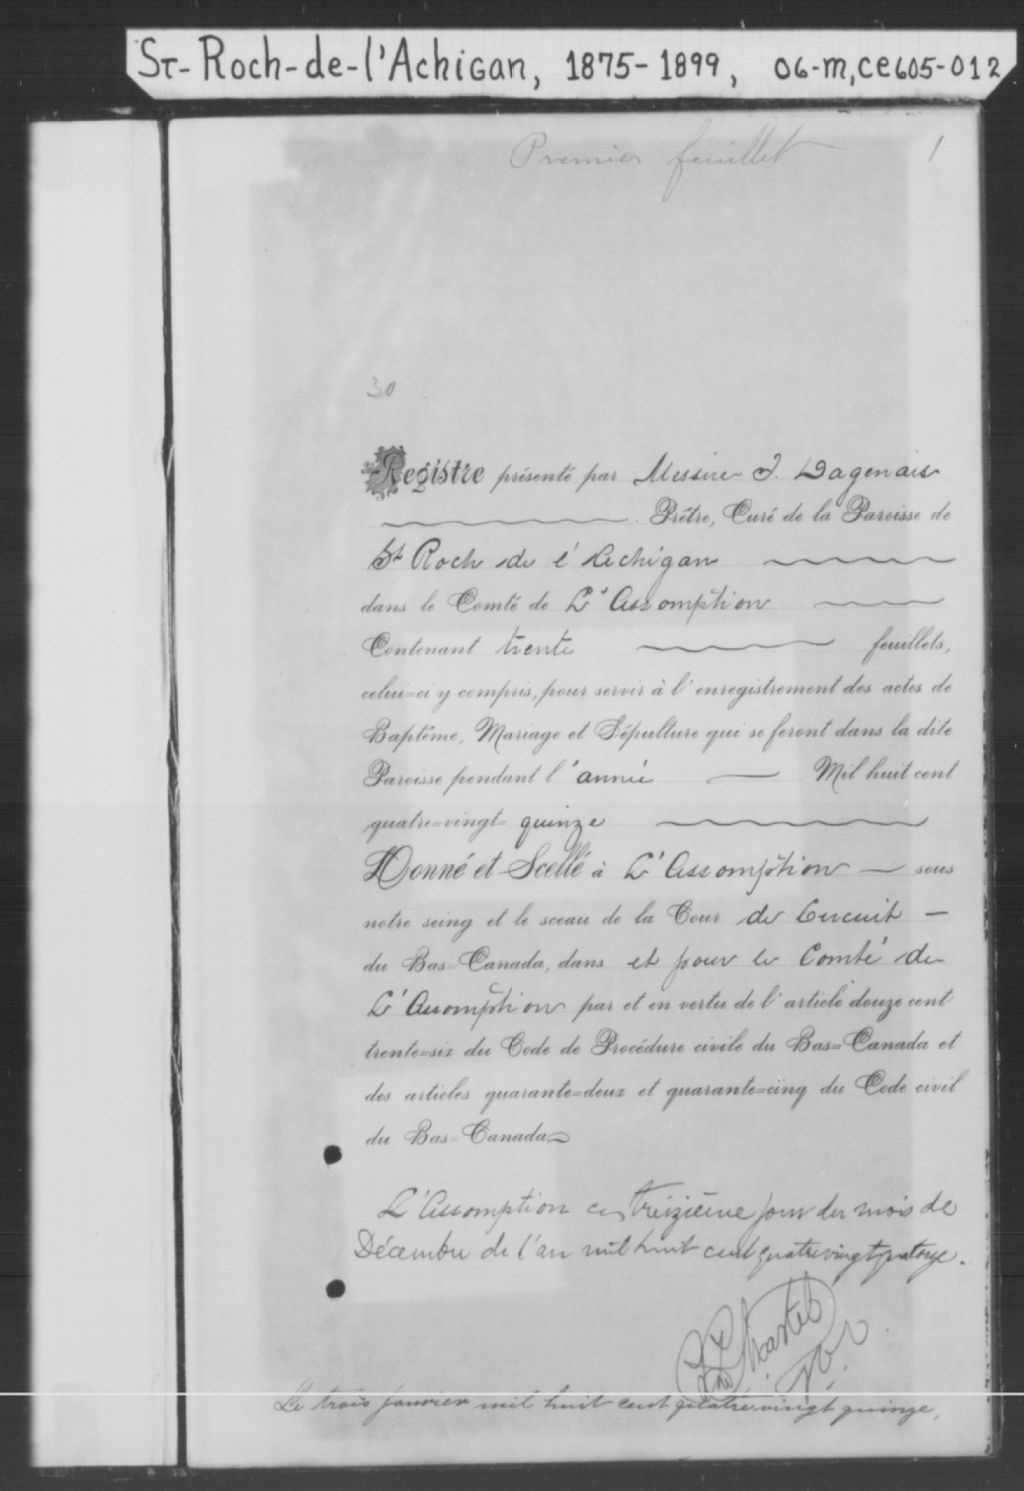 St-Roch-de-l'Achigan, 1875-1899, 06-M,CE605-012
Premier feuillet 1
30
Registre présenté par Messire J. Dagenais
Prêtre, Curé de la Paroisse de
St Roch de l'Achigan
dans le Comté de L'Assomption
Contenant trente feuillets,
celui=ci y compris, pour servir à l'enregistrement des actes de
Baptême, Mariage et Sépulture qui se feront dans la dite
Paroisse pendant l'année Mil huit cent
quatre=vingt= quinze
Donné et Scellé à L'Assomption sous
notre seing et le sceau de la Cour de Circuit
du Bas=Canada, dans et pour le Comté de
L'Assomption par et en vertu de l'article douze cent
trente=six du Code de Procédure civile du Bas=Canada et
des articles quarante=deux et quarante=cinq du Code civil
du Bas=Canada
L'Assomption ce treizième jour du mois de
Décembre de l'an mil huit cent quatre vingt quatorze.
Martel
Le trois janvier mil huit cent quatre vingt quinze,